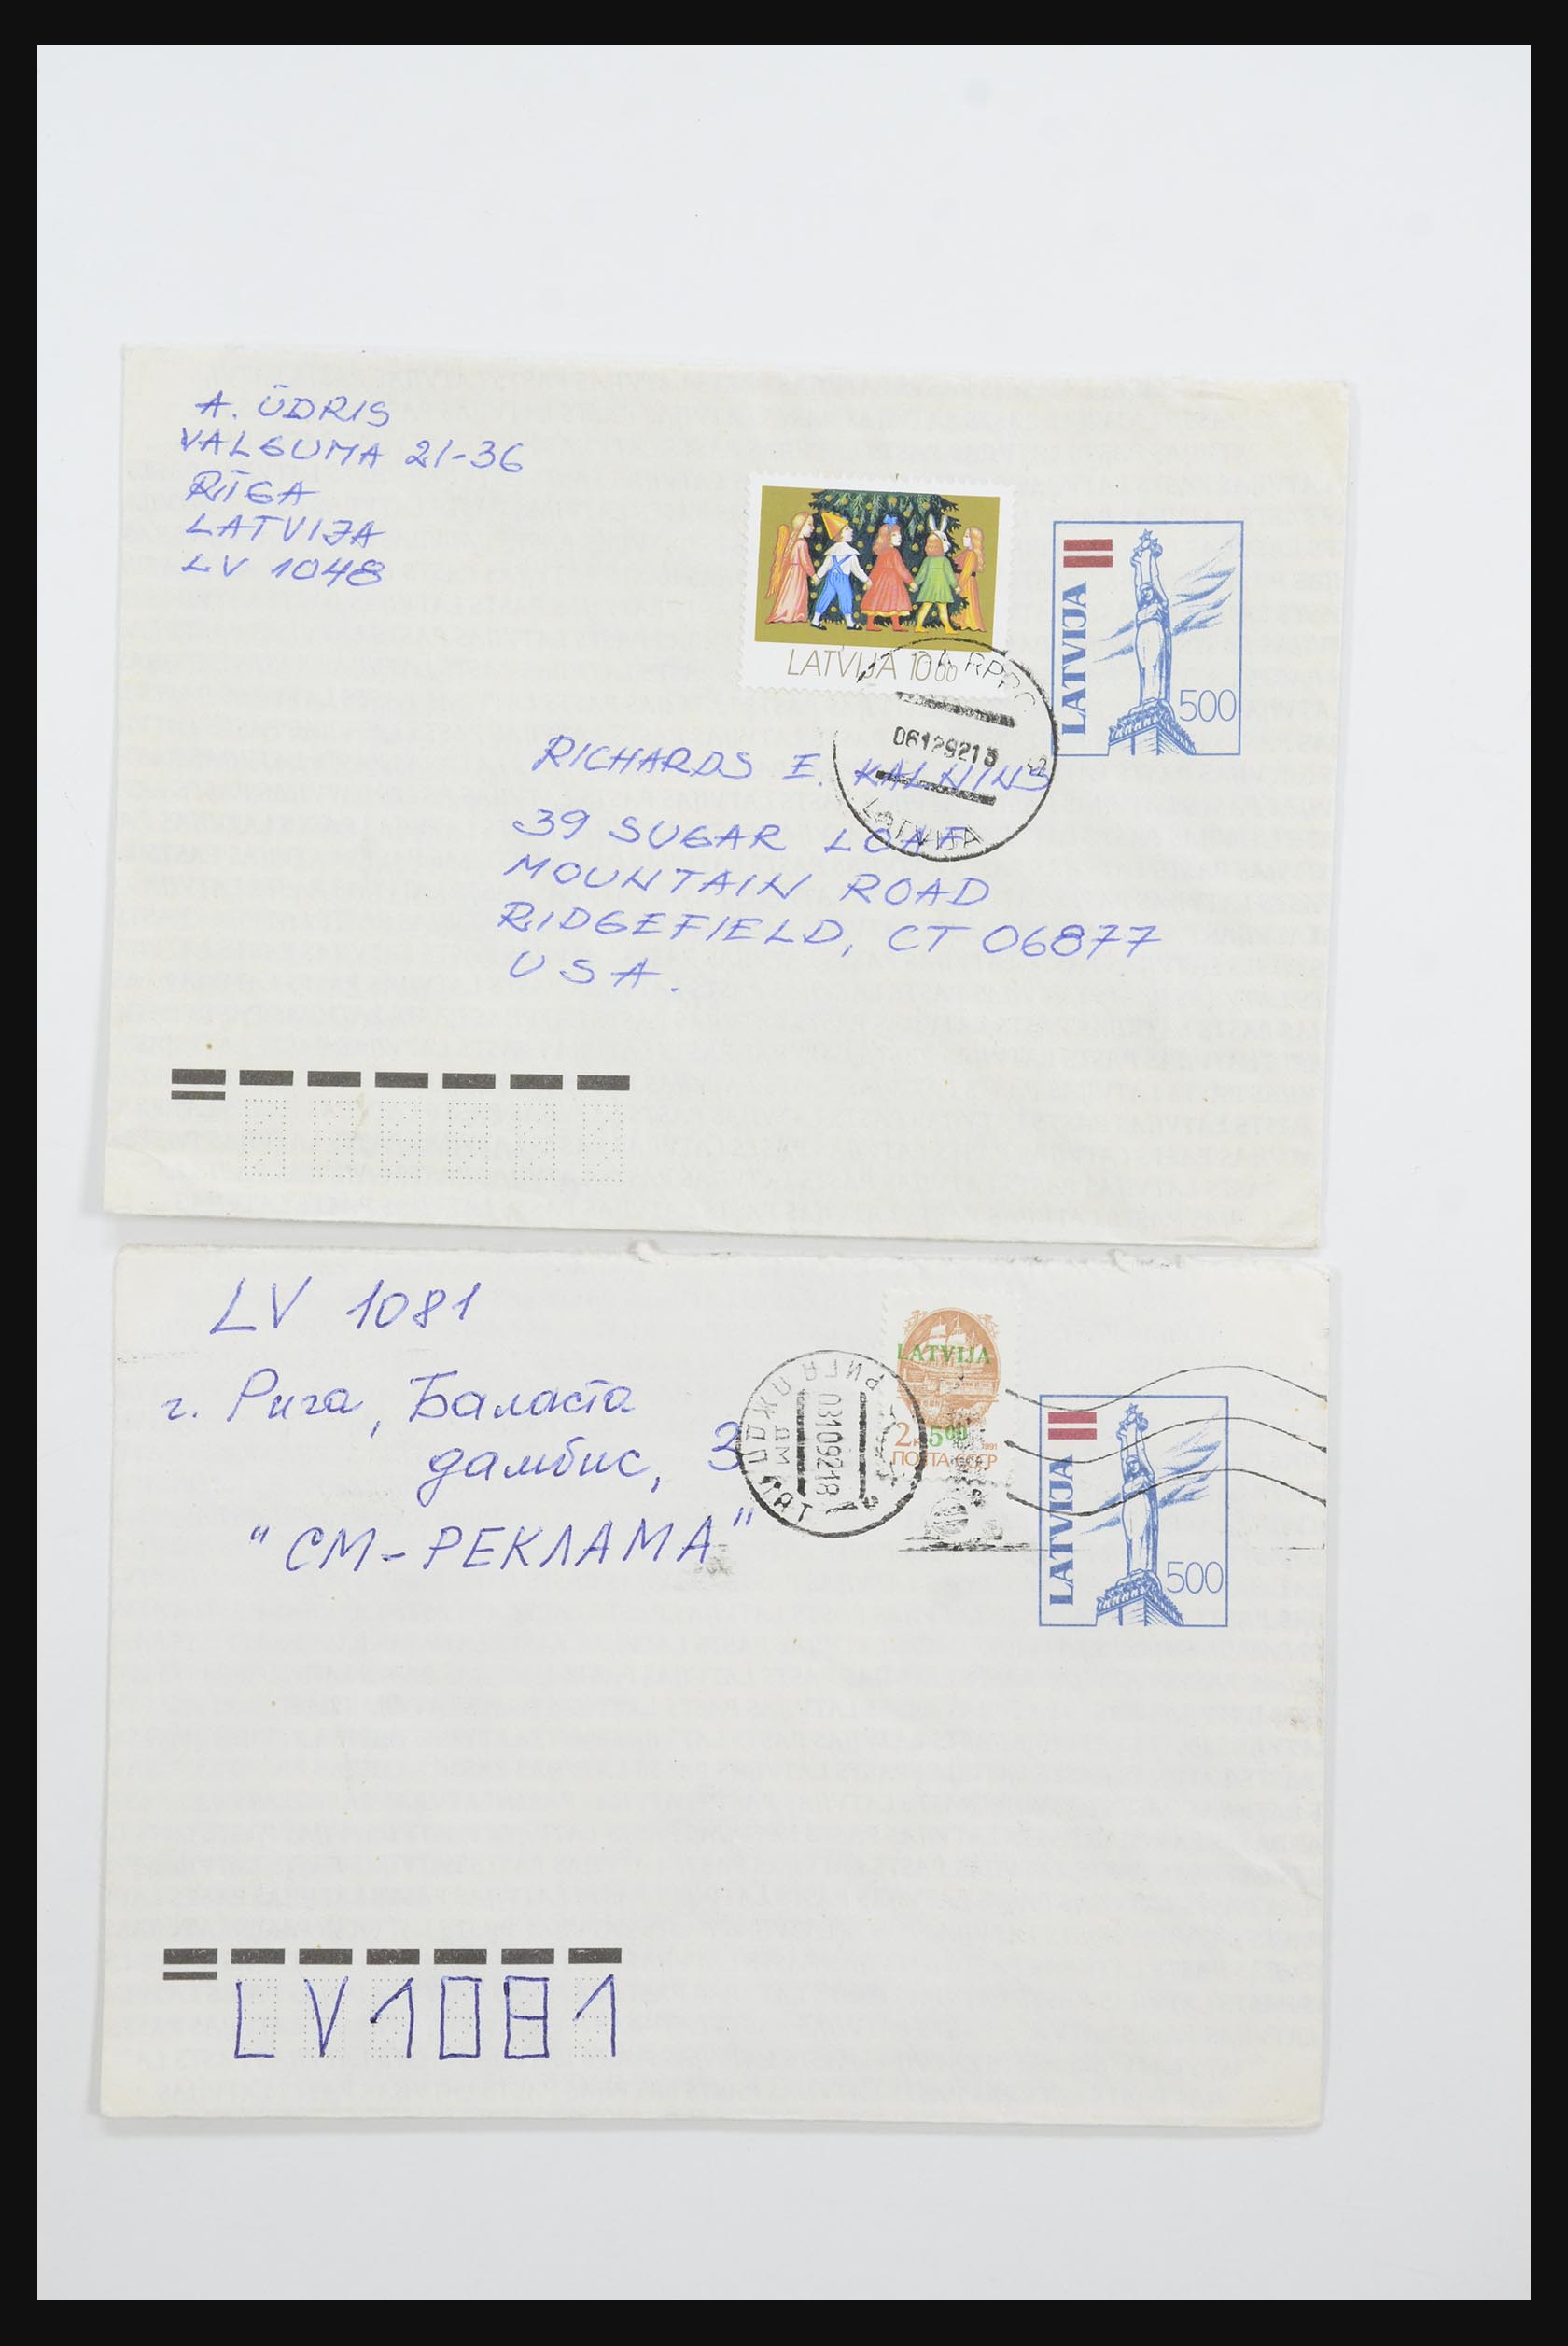 A. ŪDRIS
VALGUMA 21-36
RĪGA
LATVIJA
LV 1048
LATVIJA 10 00
LATVIJA
500
RPPC
06129213
LATVIJA
RICHARDS E. KALNINS
39 SUGAR LOAF
MOUNTAIN ROAD
RIDGEFIELD, CT 06877
USA.
LV 1081
г. Рига, Баласта
дамбис, 3
"СМ-РЕКЛАМА"
LATVIJA
2к 5 00
1991
ПОЧТА СССР
РИГА ПЖДП
03109218
LATVIJA
500
LV1081